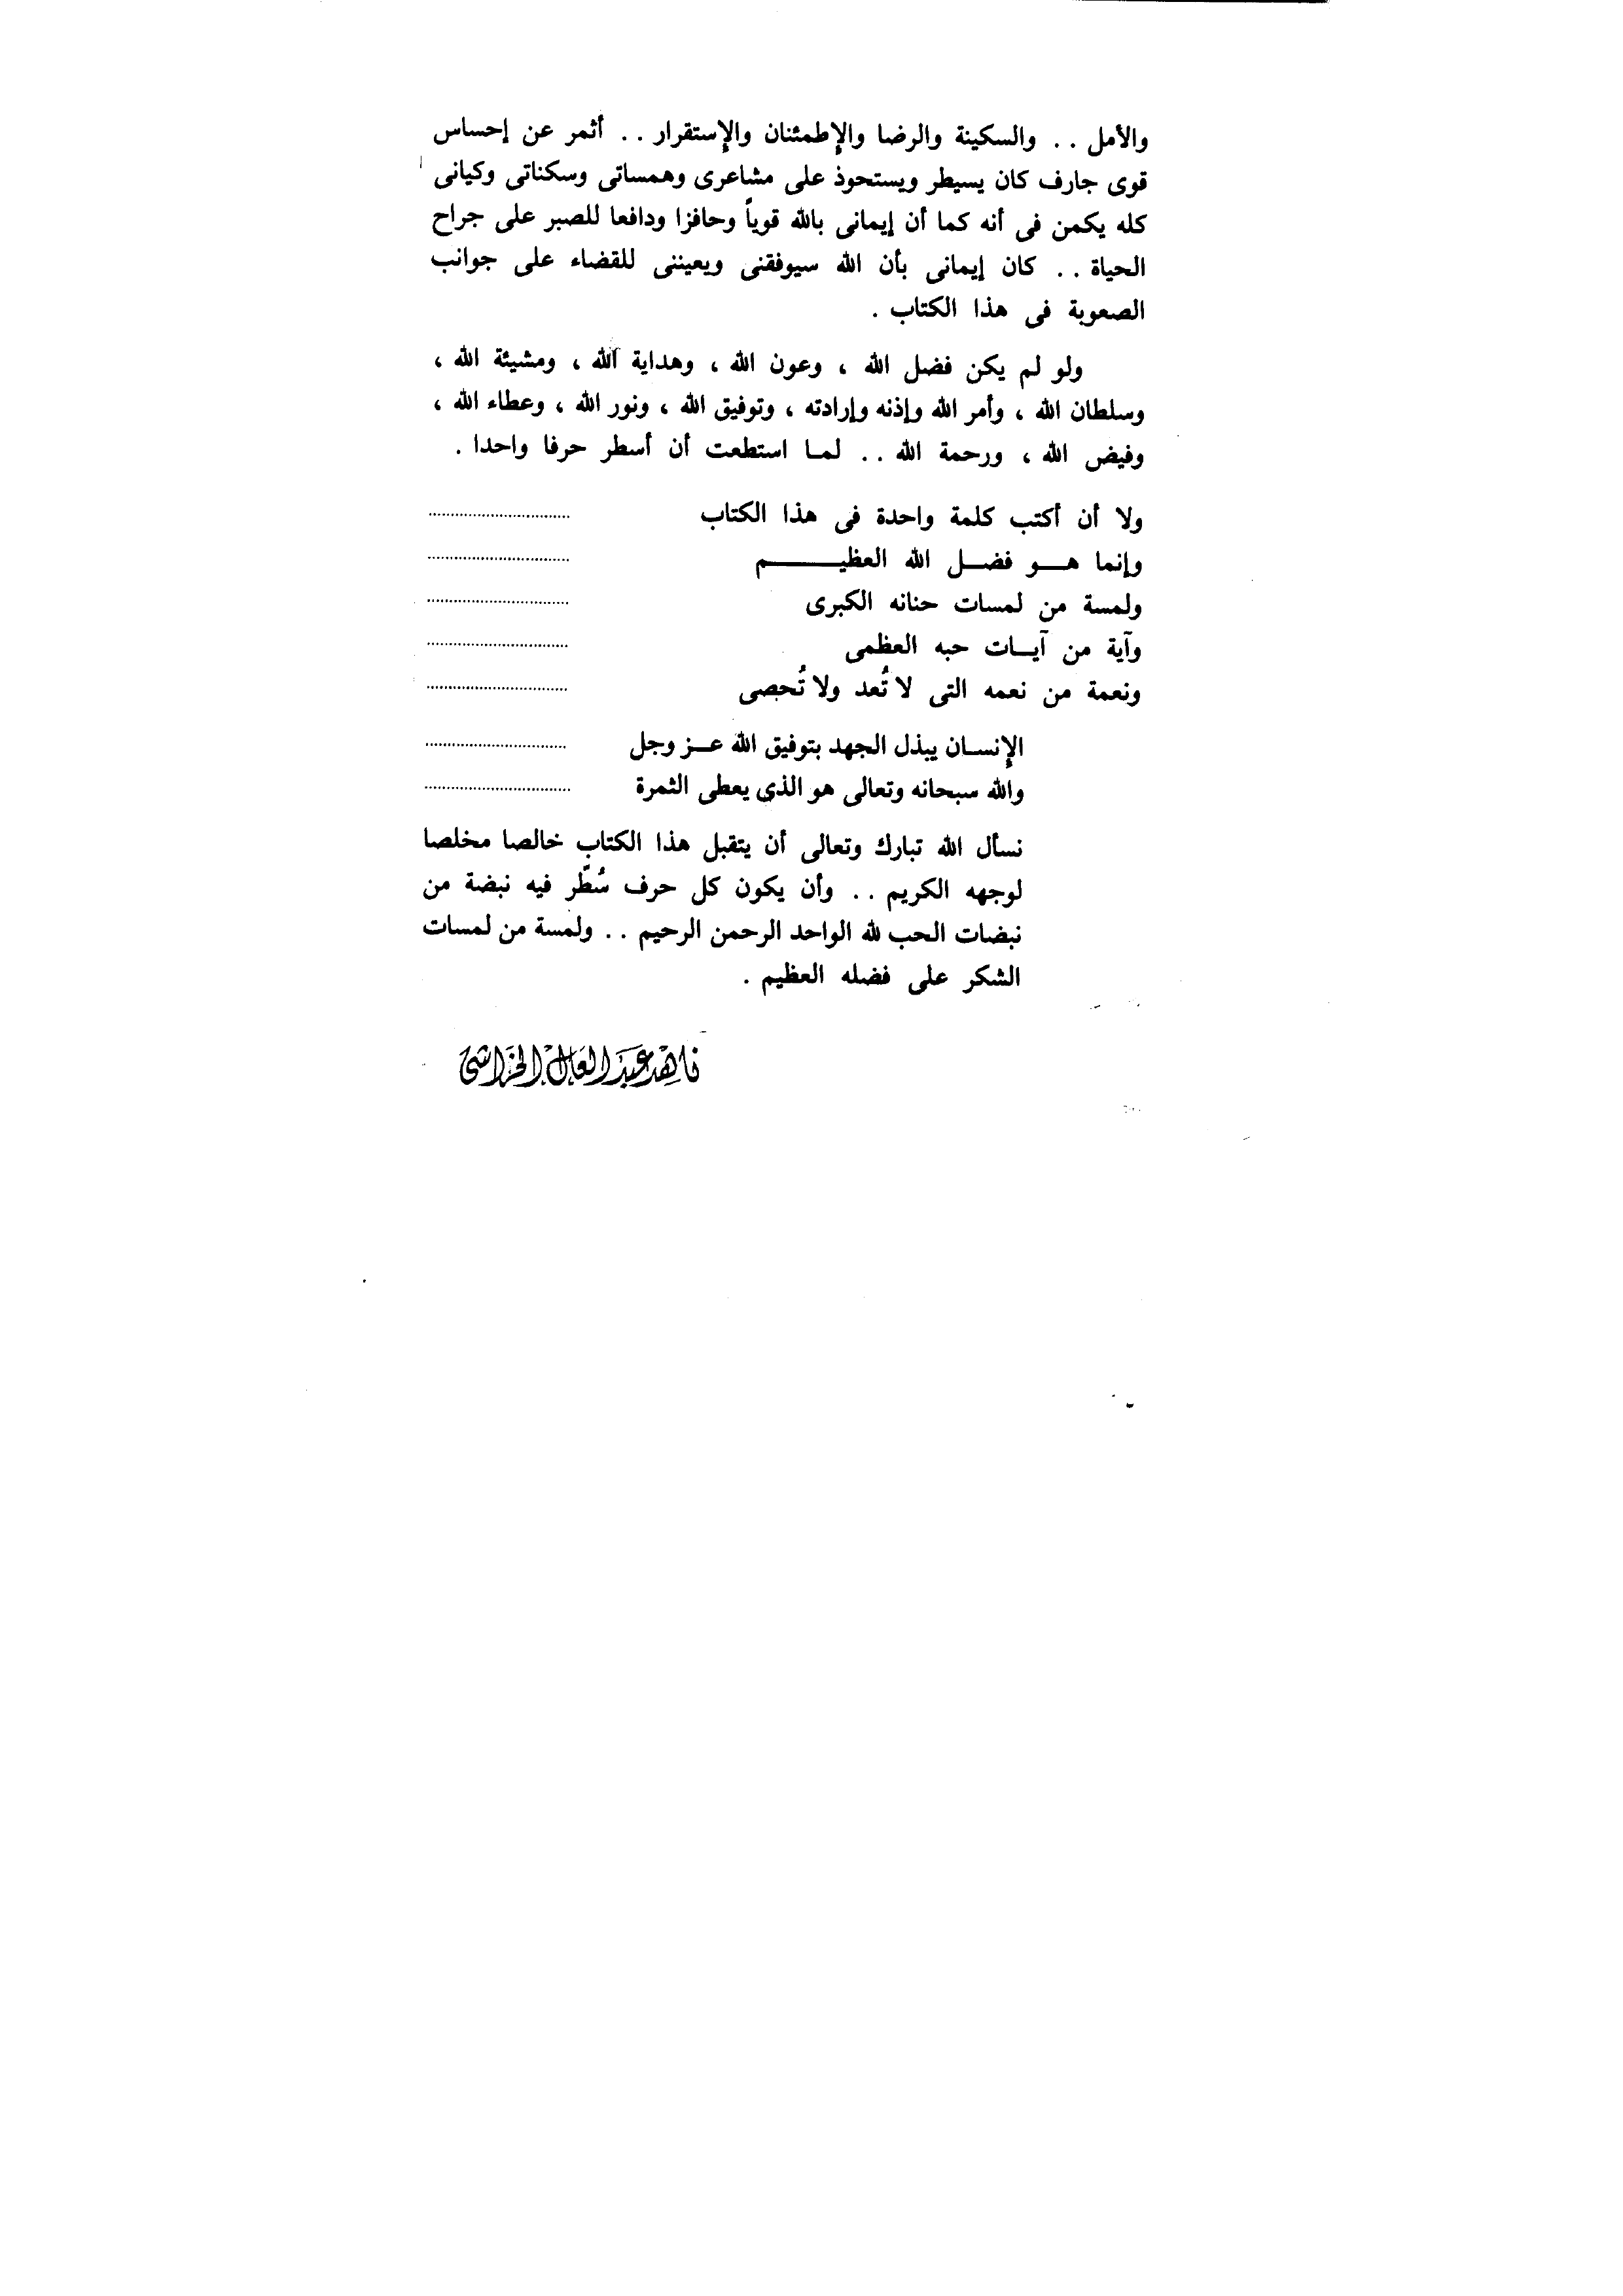 والأمل . . والسكينة والرضا والإطمئنان والإستقرار . . أثمر عن إحساس
قوى جارف كان يسيطر ويستحوذ على مشاعرى وهمساتى وسكناتى وكيانى
كله يكمن فى أنه كما أن إيمانى بالله قوياً وحافزا ودافعا للصبر على جراح
الحياة . . كان إيمانى بأن الله سيوفقنى ويعيننى للقضاء على جوانب
الصعوبة فى هذا الكتاب .
ولو لم يكن فضل الله ، وعون الله ، وهداية الله ، ومشيئة الله ،
وسلطان الله ، وأمر الله وإذنه وإرادته ، وتوفيق الله ، ونور الله ، وعطاء الله ،
وفيض الله ، ورحمة الله . . لمـا استطعت أن أسطر حرفا واحدا .
ولا أن أكتب كلمة واحدة فى هذا الكتاب ...................................
وإنما هـــو فضــل الله العظيـــــــــم ...................................
ولمسة من لمسات حنانه الكبرى ...................................
وآية من آيـــات حبه العظمى ...................................
ونعمة من نعمه التى لا تُعد ولا تُحصى ...................................
الإنســان يبذل الجهد بتوفيق الله عــز وجل ...................................
والله سبحانه وتعالى هو الذى يعطى الثمرة ....................................
نسأل الله تبارك وتعالى أن يتقبل هذا الكتاب خالصا مخلصا
لوجهه الكريم . . وأن يكون كل حرف سُطِّر فيه نبضة من
نبضات الحب لله الواحد الرحمن الرحيم . . ولمسة من لمسات
الشكر على فضله العظيم .
ناهد عبد العال الخراشى